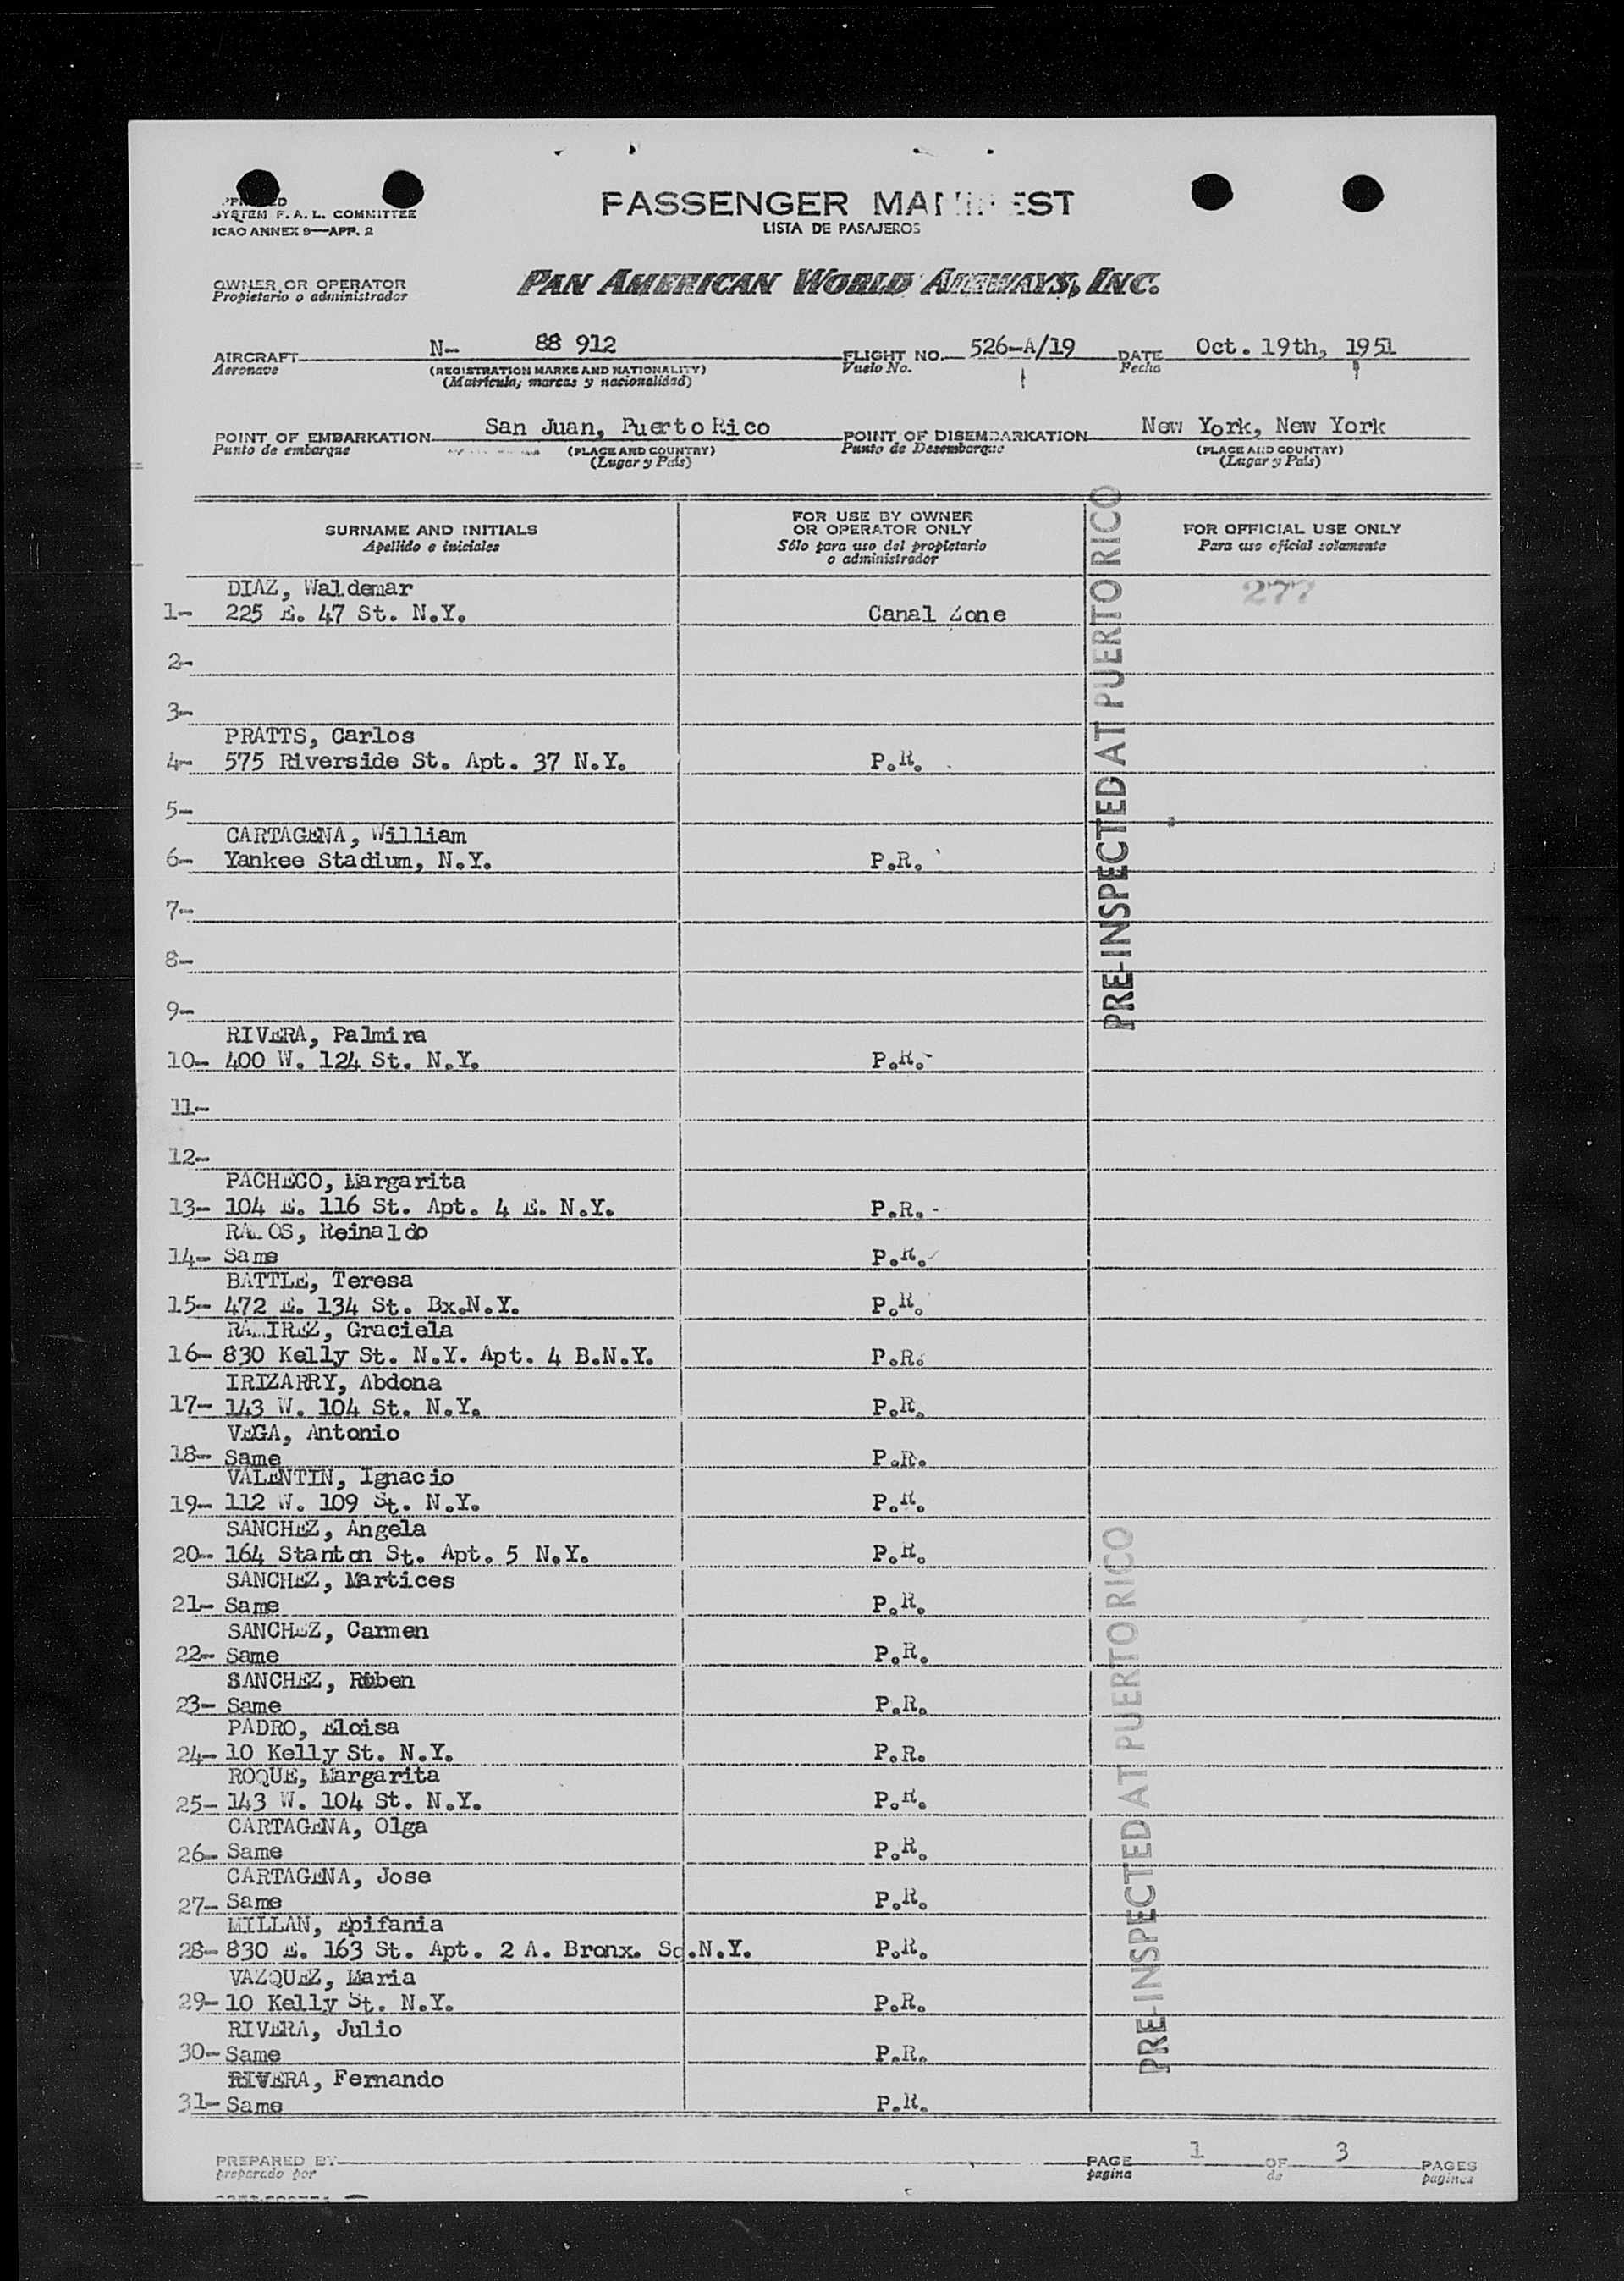 SYSTEM F. A. L. COMMITTEE
ICAO ANNEX 9—APP. 2
PASSENGER MANIFEST
LISTA DE PASAJEROS
OWNER OR OPERATOR
Propietario o administrador
PAN AMERICAN WORLD AIRWAYS, INC.
AIRCRAFT N- 88 912 FLIGHT NO. 526-A/19 DATE Oct. 19th, 1951
Aeronave (REGISTRATION MARKS AND NATIONALITY) Vuelo No. Fecha
(Matrícula; marcas y nacionalidad)
POINT OF EMBARKATION San Juan, Puerto Rico POINT OF DISEMBARKATION New York, New York
Punto de embarque (PLACE AND COUNTRY) Punto de Desembarque (PLACE AND COUNTRY)
(Lugar y País) (Lugar y País)
SURNAME AND INITIALS
Apellido e iniciales
FOR USE BY OWNER
OR OPERATOR ONLY
Sólo para uso del propietario
o administrador
FOR OFFICIAL USE ONLY
Para uso oficial solamente
PRE-INSPECTED AT PUERTO RICO
DIAZ, Waldemar 277
1- 225 E. 47 St. N.Y. Canal Zone
2-
3-
PRATTS, Carlos
4- 575 Riverside St. Apt. 37 N.Y. P.R.
5-
CARTAGENA, William
6- Yankee Stadium, N.Y. P.R.
7-
8-
9-
RIVERA, Palmira
10- 400 W. 124 St. N.Y. P.R.-
11-
12-
PACHECO, Margarita
13- 104 E. 116 St. Apt. 4 E. N.Y. P.R.-
RAMOS, Reinaldo
14- Same P.R.
BATTLE, Teresa
15- 472 E. 134 St. Bx.N.Y. P.R.
RAMIREZ, Graciela
16- 830 Kelly St. N.Y. Apt. 4 B.N.Y. P.R.
IRIZARRY, Abdona
17- 143 W. 104 St. N.Y. P.R.
VEGA, Antonio
18- Same P.R.
VALENTIN, Ignacio
19- 112 W. 109 St. N.Y. P.R.
SANCHEZ, Angela
20- 164 Stanton St. Apt. 5 N.Y. P.R.
SANCHEZ, Martices
21- Same P.R.
SANCHEZ, Carmen
22- Same P.R.
SANCHEZ, Ruben
23- Same P.R.
PADRO, Eloisa
24- 10 Kelly St. N.Y. P.R.
ROQUE, Margarita
25- 143 W. 104 St. N.Y. P.R.
CARTAGENA, Olga
26- Same P.R.
CARTAGENA, Jose
27- Same P.R.
MILLAN, Epifania
28- 830 E. 163 St. Apt. 2 A. Bronx. Sd.N.Y. P.R.
VAZQUEZ, Maria
29- 10 Kelly St. N.Y. P.R.
RIVERA, Julio
30- Same P.R.
RIVERA, Fernando
31- Same P.R.
PRE-INSPECTED AT PUERTO RICO
PREPARED BY PAGE 1 OF 3 PAGES
preparado por pagina de paginas